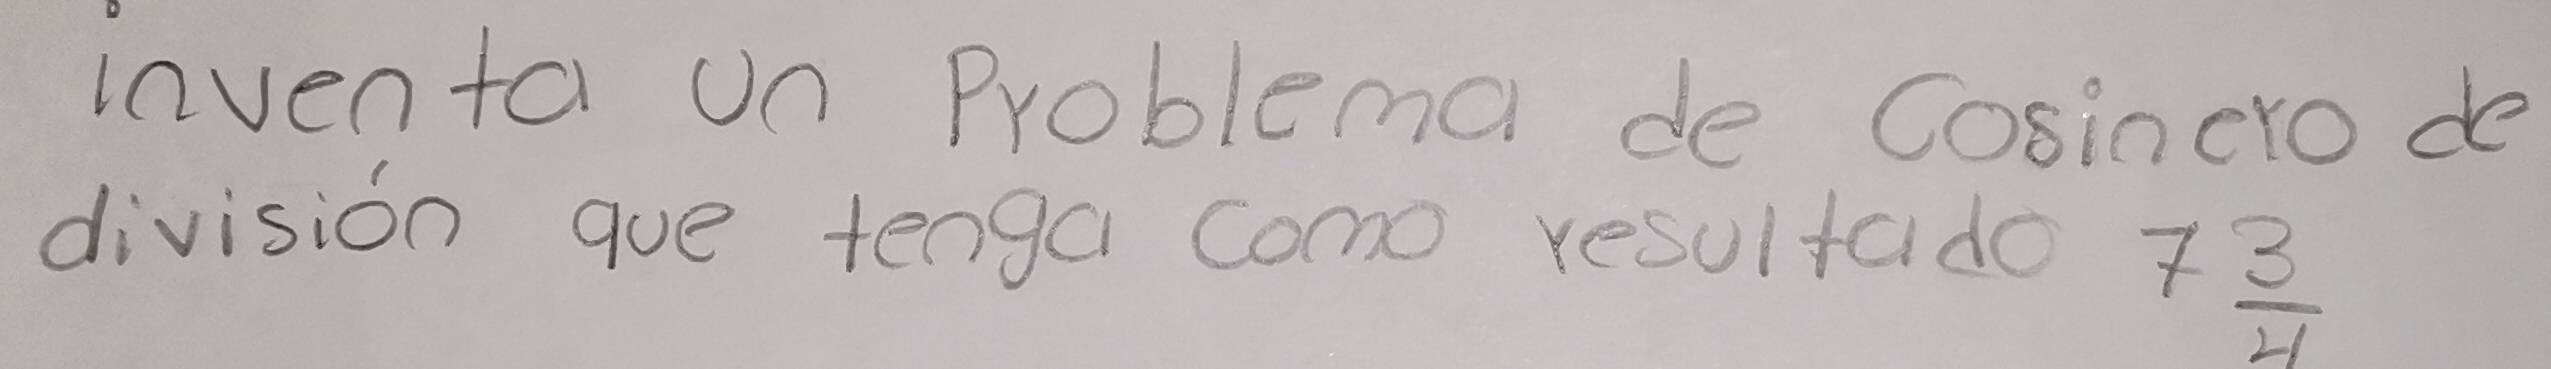 inventa un Problema de Cosinero de
división que tenga como resultado 7 3/4